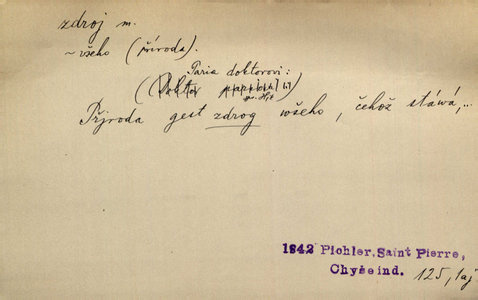 zdroj m.
~ všeho (příroda).
Paria doktorovi:
(Doktor
Přjroda gest zdrog wšeho, čehož stáwá,...
1842 Pichler, Saint Pierre,
Chyšeind. 125, 1aj